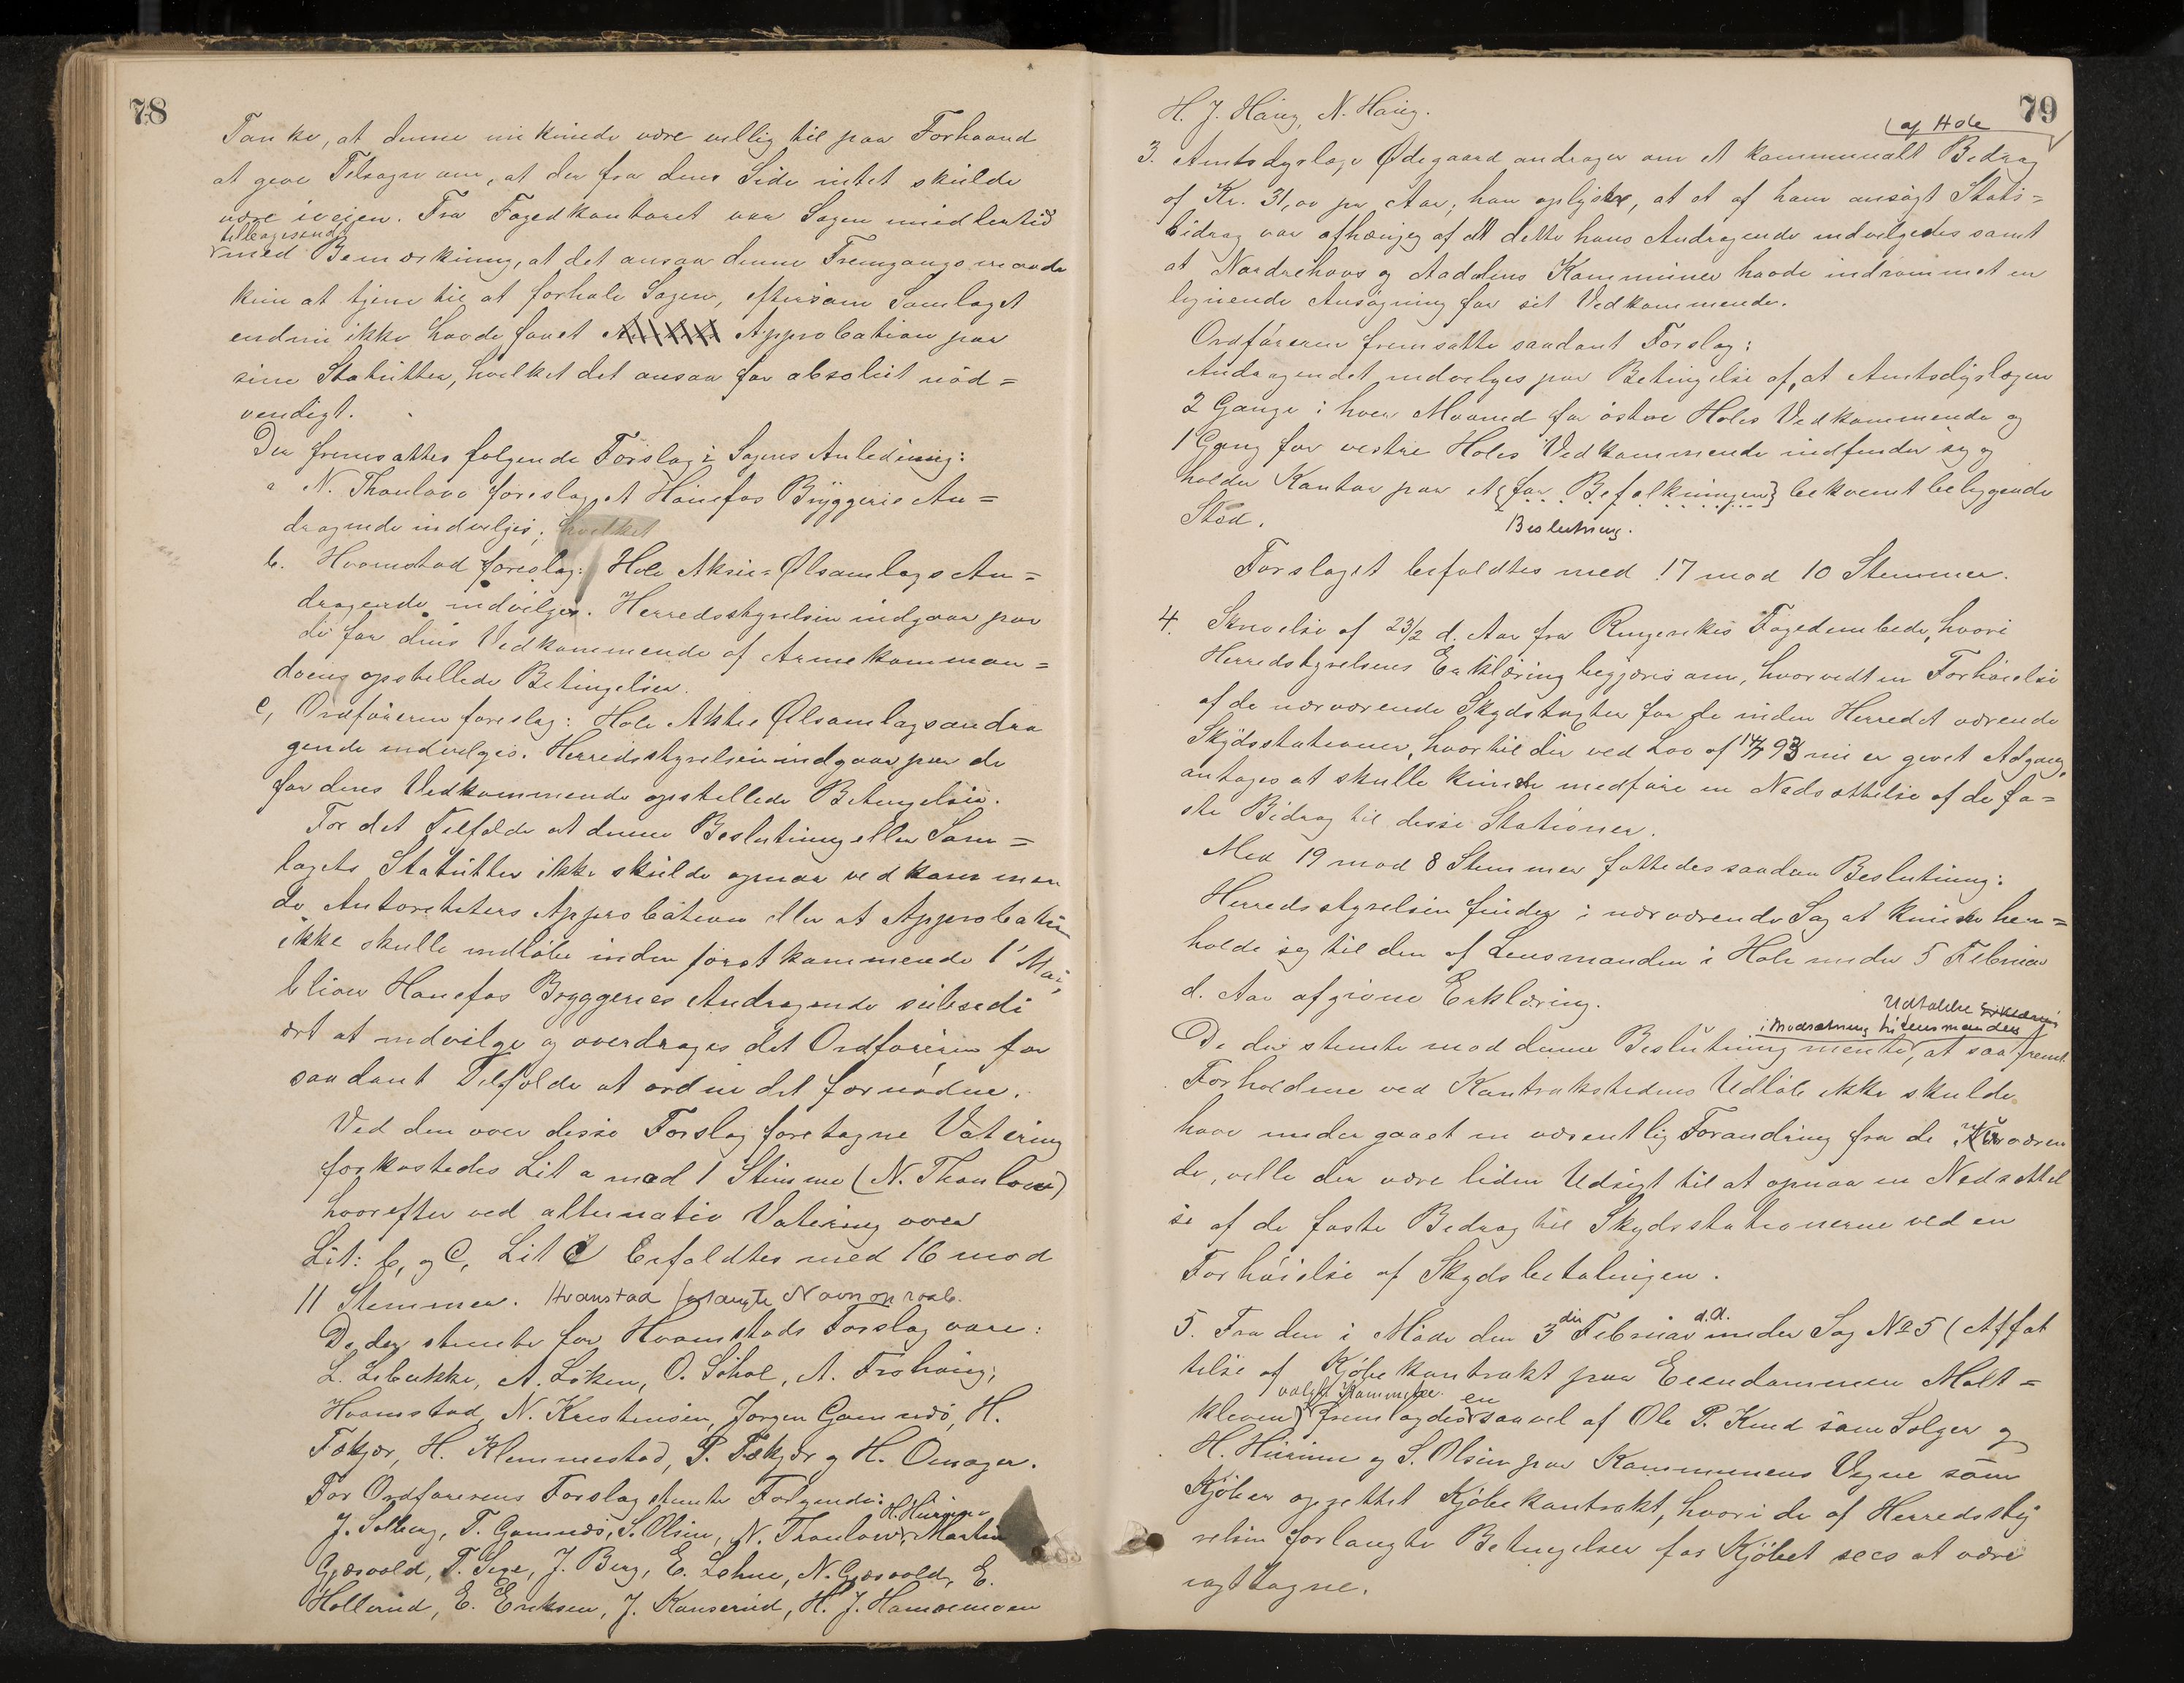 78
Tanke, at denne nu kunde være villig til paa Forhaand
at give Tilsagn om, at der fra dens Side intet skulde
være iveien. Fra Fogedkontoret var Sagen midlertid
tilbagesendt
med Bemærkning, at det ansaa denne Fremgangsmaade
kun at tjene til at forhale Sagen, eftersom Samlaget
endnu ikke havde faaet Approbation paa
sine Statutter, hvilket det ansaa for absolut nöd=
vendigt.
Der fremsattes følgende Forslag i Sagens Anledning:
a N. Thaulow foreslog, at Hönefos Bryggeris An=
dragende indvilges; hvilket
b. Hvamstad foreslog: Hole Aksie-Ølsamlags An=
dragende indvilges. Herredsstyrelsen indgaar paa
de for dens Vedkommende af Armekomman=
doens opstillede Betingelser.
c, Ordføreren foreslog: Hole Aktie Ølsamlagsandra
gende indvilges. Herredsstyrelsen indgaar paa de
for dens Vedkommende opstillede Betingelser.
For det Tilfælde at denne Beslutning eller Sam=
lagets Statutter ikke skulde opnaa vedkommen
de Autoriteters Approbation eller at Approbation
ikke skulle indløbe inden førstkommende 1' Mai,
bliver Hönefos Bryggeries Andragende subsidi
ært at indvilge og overdrages det Ordføreren for
saadant Tilfælde at ordne det fornødne.
Ved den over disse Forslag foretagne Votering
forkastedes Lit a mod 1 Stemme (N. Thaulow)
hvorefter ved alternativ Votering over
Lit: b, og C, Lit C bifaldtes med 16 mod
11 Stemmer. Hvamstad forlangte Navneopraab.
De der stemte for Hvamstads Forslag vare:
L. Libakke, A. Löken, O. Söhol, A. Frohaug,
Hvamstad, N. Kristensen, Jørgen Gomnæs, H.
Fækjær, H. Klemmestad, P. Fækjær og H. Onsager.
For Ordførerens Forslag stemte Følgende:
H. Hurum
J. Solberg, T. Gomnæs, S. Olsen, N. Thaulow, Martin
Gjæsvold, T. Sege, J. Berg, E. Lehne, N. Gjæsvold, E.
Hollerud, E. Eriksen, J. Kanserud, H. J. Hamremoen
79
H. J. Haug, N. Haug.
af Hole
3. Amtsdyrlæge Ødegaard andrager om et kommunalt Bidrag
af Kr. 31,00 pr Aar; han oplyser, at et af ham ansøgt Stats=
bidrag var afhængig af at dette hans Andragende indvilgedes samt
at Norderhovs og Aadalens Kommuner havde indrømmet en
lignende Ansøgning for sit Vedkommende.
Ordføreren fremsatte saadant Forslag:
Andragendet indvilges paa Betingelse af, at Amtsdyrlægen
2 Gange i hver Maaned for östre Holes Vedkommende og
1 Gang for vestre Holes Vedkommende indfinder sig og
holder Kontor paa et for Befolkningen bekvemt beliggende
Sted.
Beslutning.
Forslaget bifaldtes med 17 mod 10 Stemmer.
4. Skrivelse af 23/2 d. Aar fra Ringerikes Fogedembede, hvori
Herredstyrelsens Erklæring begjæres om, hvorvidt en Forhöielse
af de nærværende Skydstaxter for de inden Herredet værende
Skydsstationer, hvortil der ved Lov af 14/7 93 nu er givet Adgang,
antages at skulle kunde medføre en Nedsættelse af de fa=
ste Bidrag til disse Stationer.
Med 19 mod 8 Stemmer fattedes saadan Beslutning:
Herredsstyrelsen finder i nærværende Sag at kunde hen=
holde sig til den af Lensmanden i Hole under 5 Februar
d. Aar afgivne Erklæring.
Udtalelse
i Modsætning til Lensmandens
De der stemte mod denne Beslutning mente, at saafremt
Forholdene ved Kontrakstidens Udløb ikke skulde
have undergaaet en væsentlig Forandring fra de nuværen
de, ville der være liden Udsigt til at opnaa en Nedsættel
se af de faste Bidrag til Skydsstationerne ved en
Forhöielse af Skydsbetalingen.
5. Fra den i Møde den 3die Februar d.A. under Sag No 5 (Affat
telse af Kjöbekontrakt paa Eiendommen Molt=
valgte Kommitee en
kleven) fremlagdes saavel af Ole P. Rud som Sælger og
H. Hurum og S. Olsen paa Kommunens Vegne som
Kjöber oprettet Kjöbekontrakt, hvori de af Herredssty
relsen forlangte Betingelser for Kjöbet sees at være
iagttagne.